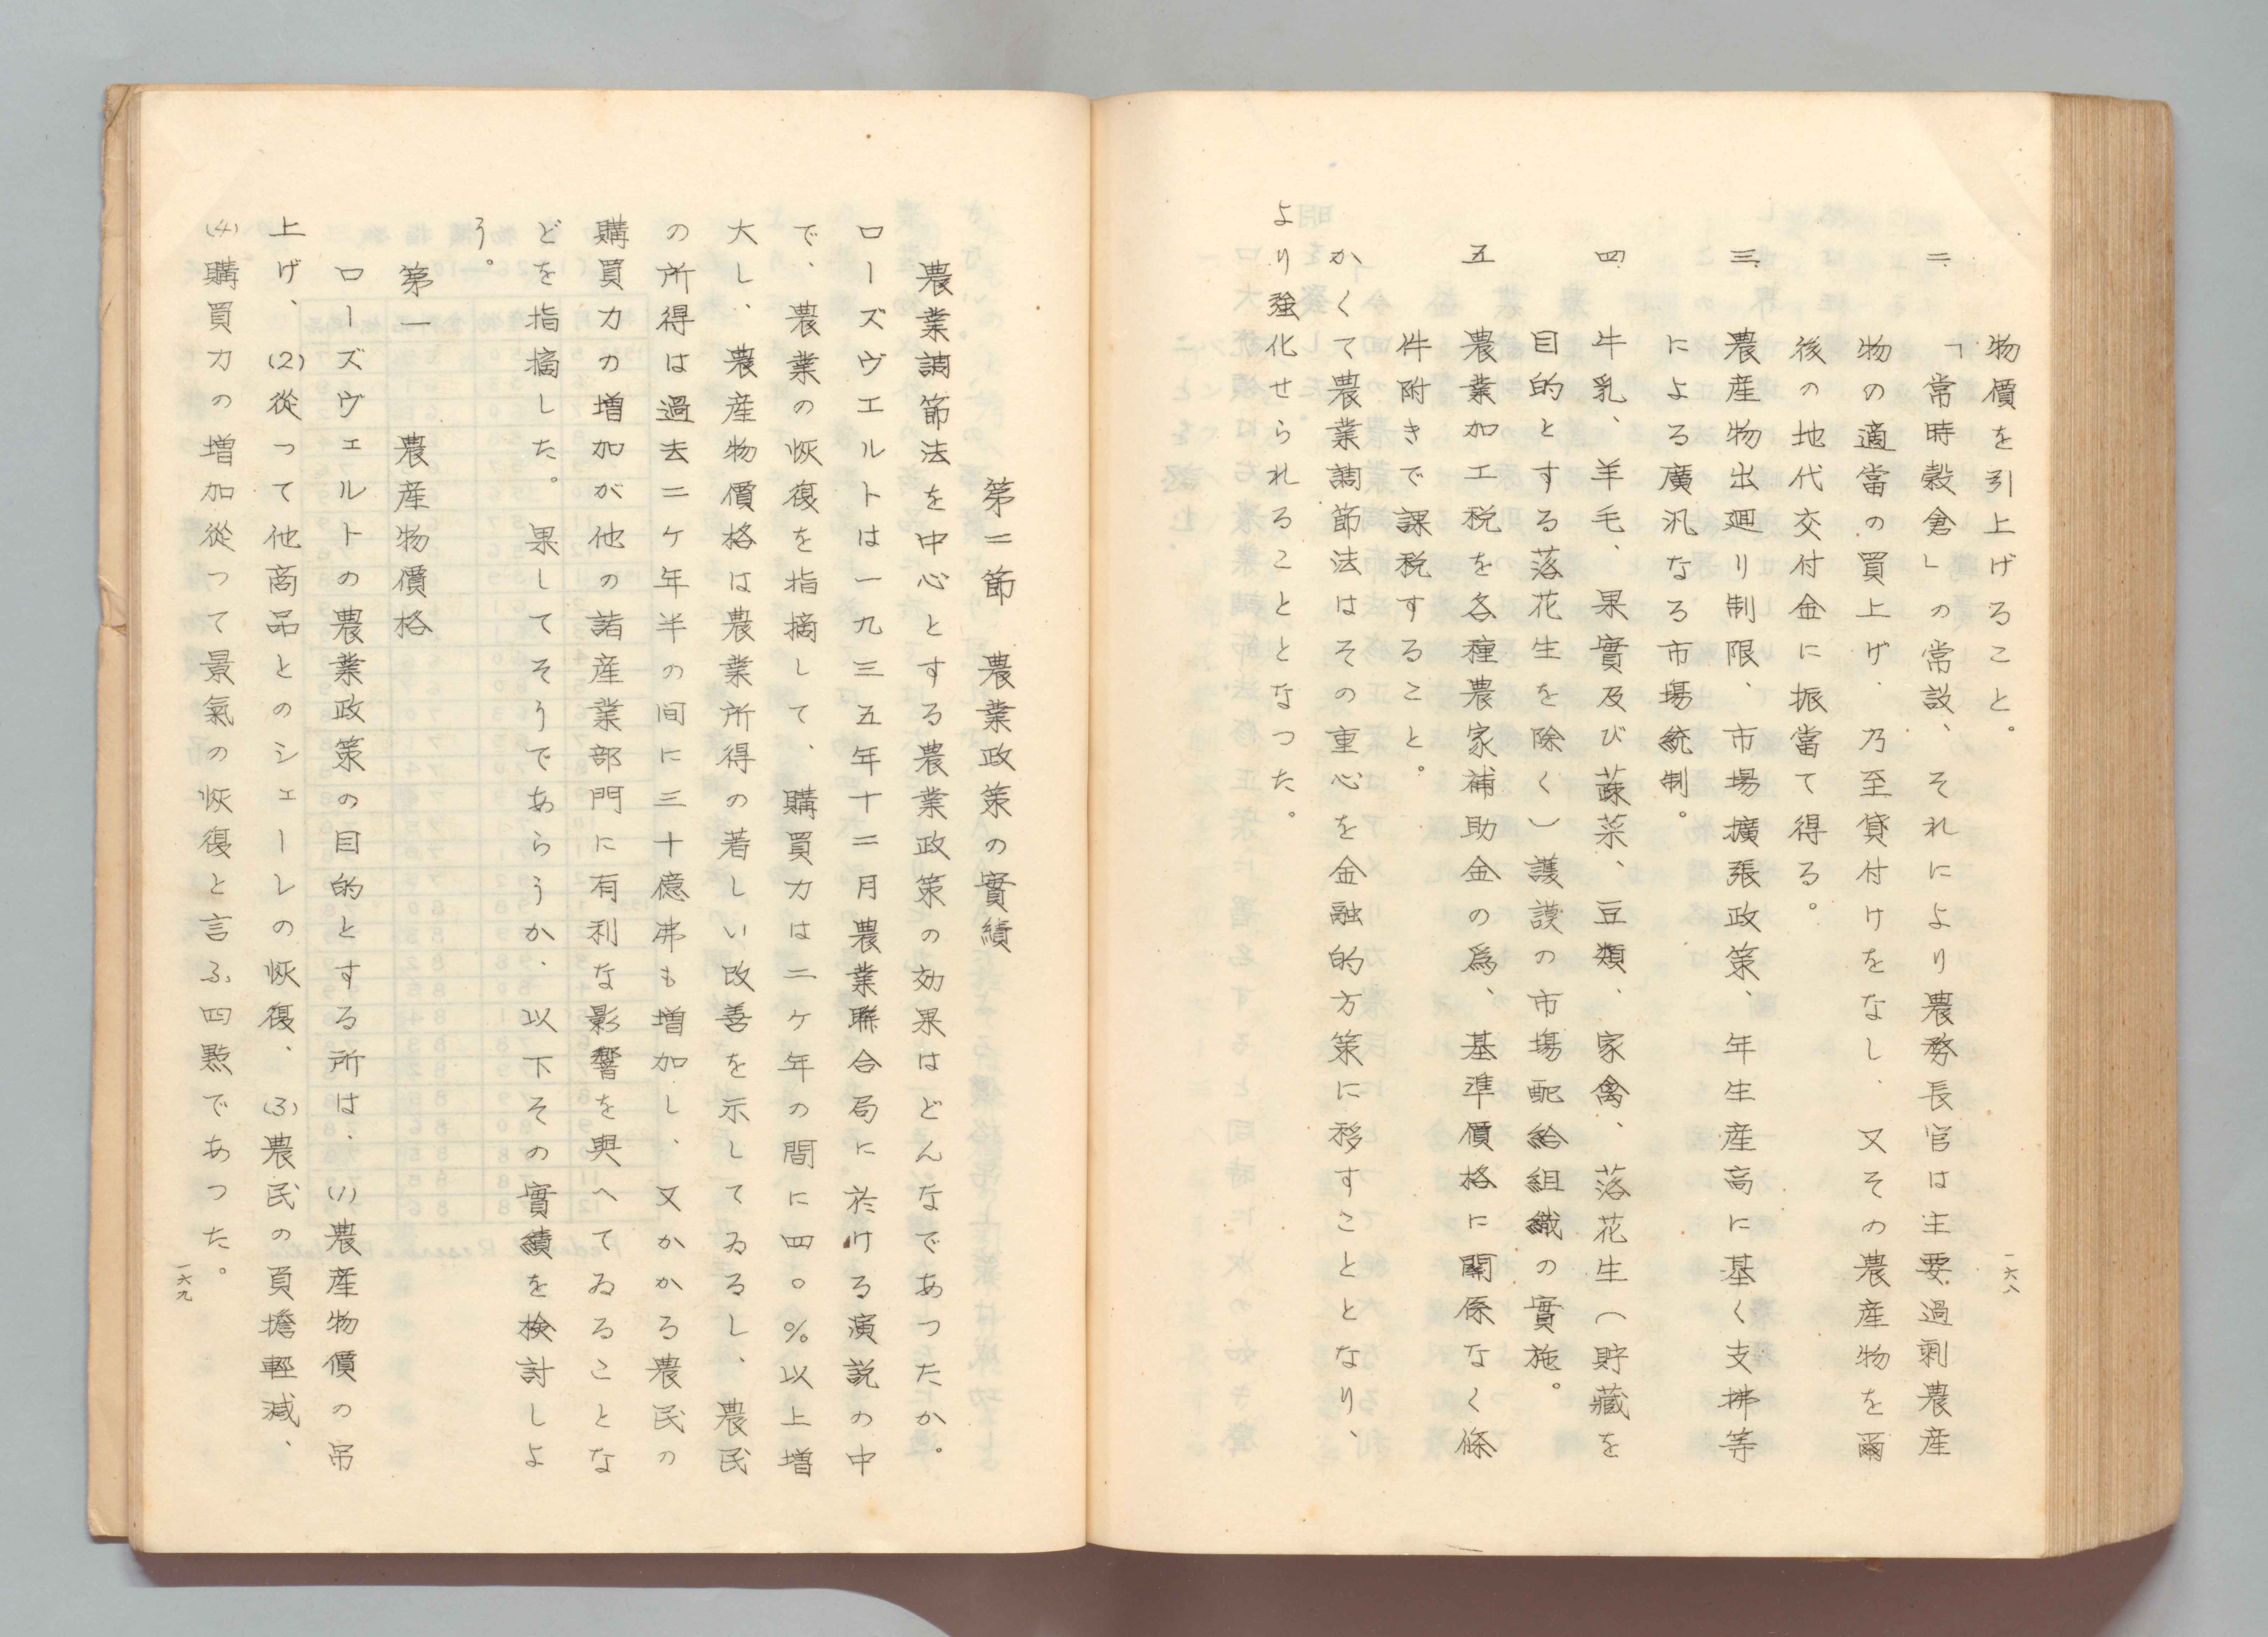 物價を引上げること。
二
「常時穀倉」の常設、それにより農務長官は主要過剰農産
物の適當の買上げ、乃至貸付けをなし、又その農産物を爾
後の地代交付金に振當て得る。
三　農産物出廻り制限、市場擴張政策、年生産高に基く支拂等
による廣汎なる市場統制。
四　牛乳、羊毛、果實及び蔬菜、豆類、家禽、落花生(貯藏を
目的とする落花生を除く)護謨の市場配給組織の實施。
五　農業加工税を各種農家補助金の爲、基準價格に關係なく條
件附きで課税すること。
かくて農業調節法はその重心を金融的方策に移すこととなり、
より強化せられることとなつた。
一六八
第二節　農業政策の實績
農業調節法を中心とする農業政策の効果はどんなであつたか。
ローズヴエルトは一九三五年十二月農業聯合局に於ける演説の中
で、農業の恢復を指摘して、購買力は二ケ年の間に四〇%以上増
大し、農産物價格は農業所得の著しい改善を示してゐるし、農民
の所得は過去二ケ年半の间に三十億弗も増加し、又かかる農民の
購買力の増加が他の諸産業部門に有利な影響を與へてゐることな
どを指摘した。果してそうであらうか、以下その實績を検討しよ
う。
第一　農産物價格
ローズヴェルトの農業政策の目的とする所は、(1)農産物價の吊
上げ、(2)從つて他商品とのシェーレの恢復、(3)農民の負擔輕減、
(4)購買力の増加從つて景氣の恢復と言ふ四點であつた。
一六九